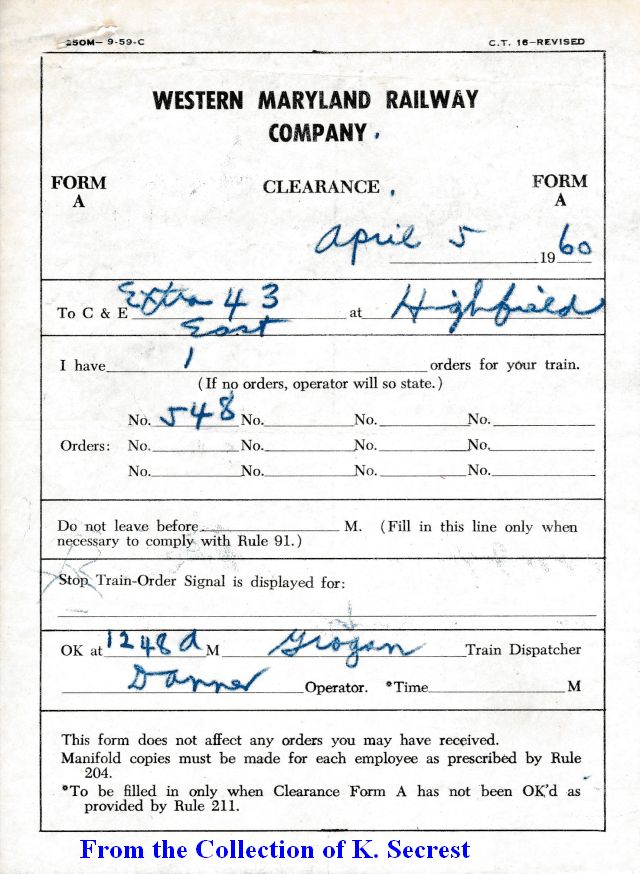 250M— 9-59-C C.T. 16—REVISED
WESTERN MARYLAND RAILWAY
COMPANY.
FORM CLEARANCE. FORM
A A
April 5 1960
To C & E Extra 43 at Highfield
East
I have 1 orders for your train.
(If no orders, operator will so state.)
No. 548 No. No. No.
Orders: No. No. No. No.
No. No. No. No.
Do not leave before M. (Fill in this line only when
necessary to comply with Rule 91.)
Stop Train-Order Signal is displayed for:
OK at 1248 a M Grogan Train Dispatcher
Danner Operator. *Time M
This form does not affect any orders you may have received.
Manifold copies must be made for each employee as prescribed by Rule
204.
*To be filled in only when Clearance Form A has not been OK'd as
provided by Rule 211.
From the Collection of K. Secrest